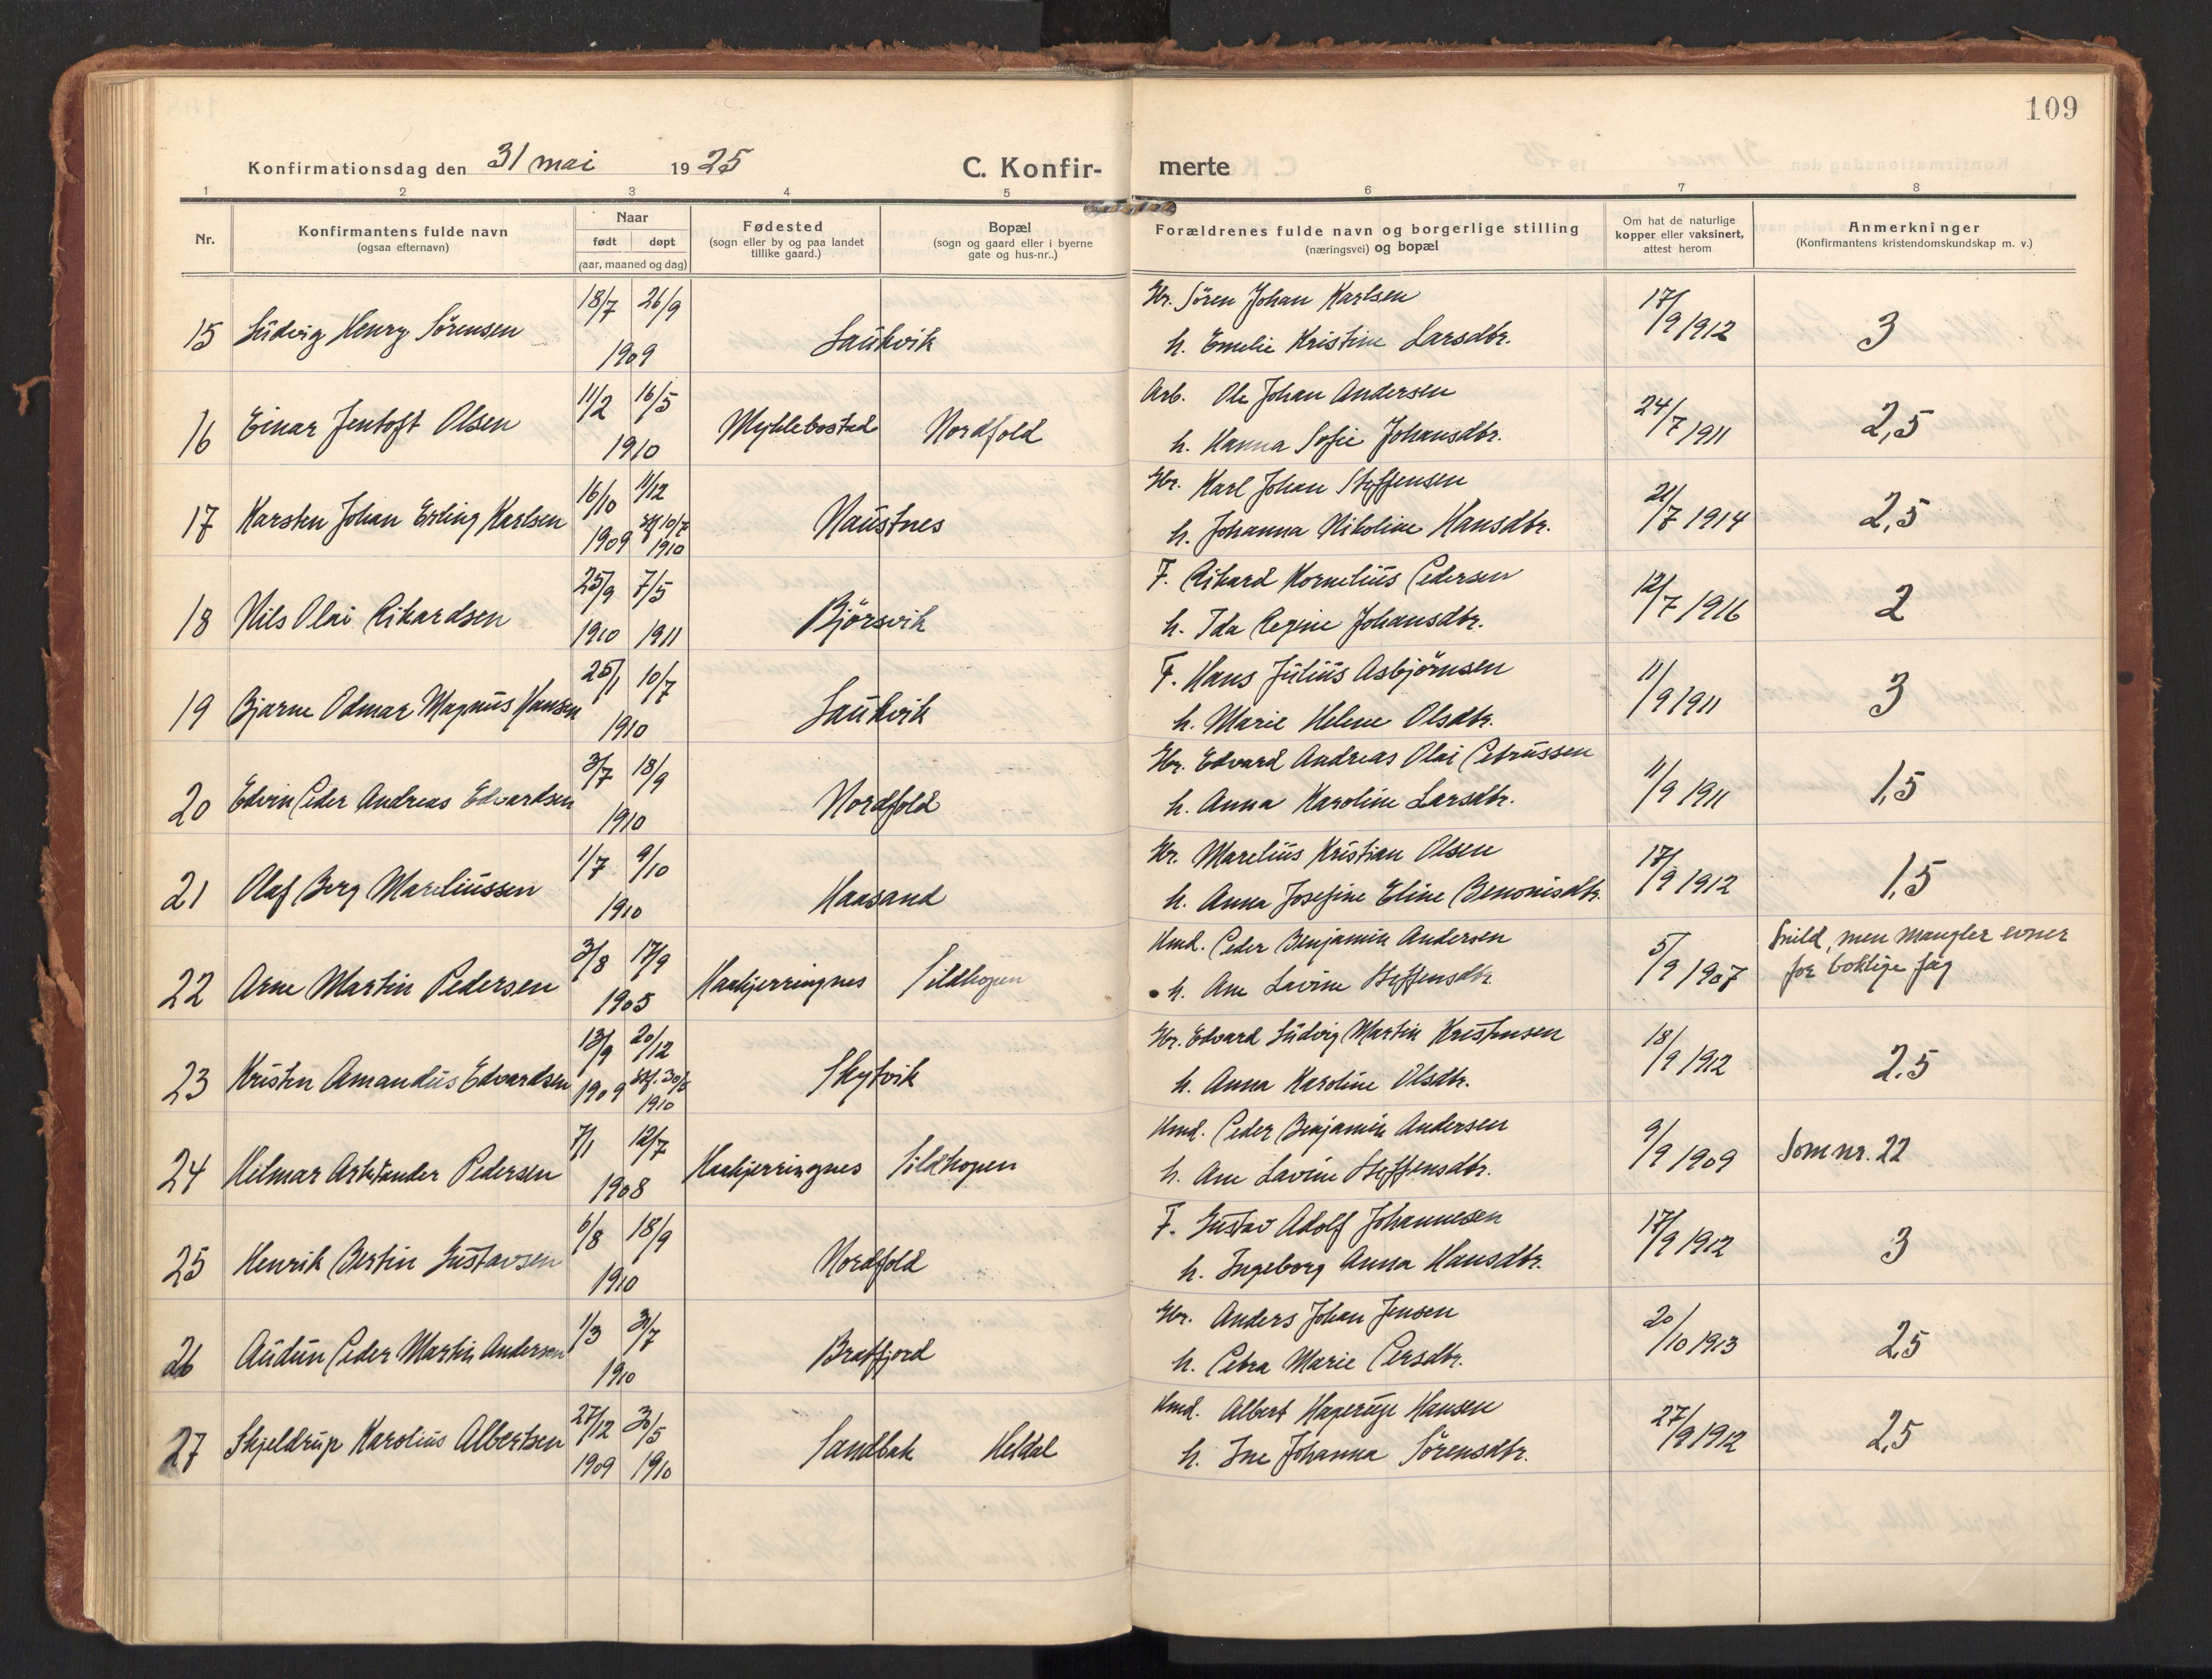 109
Konfirmationsdag den 31 mai 1925 C. Konfir- merte
1 2 3 4 5 6 7 8
Nr.
Konfirmantens fulde navn
(ogsaa efternavn)
Naar
født døpt
(aar, maaned og dag)
Fødested
(sogn eller by og paa landet
tillike gaard.)
Bopæl
(sogn og gaard eller i byerne
gate og hus-nr..)
Forældrenes fulde navn og borgerlige stilling
(næringsvei) og bopæl
Om hat de naturlige
kopper eller vaksinert,
attest herom
Anmerkninger
(Konfirmantens kristendomskundskap m. v.)
18/7 26/9 Gbr. Sören Johan Karlsen 17/9 1912
15 Ludvig Henry Sörensen Laukvik 3
1909 h. Emelie Kristine Larsdtr.
11/2 16/5 Arb. Ole Johan Andersen 24/7 1911
16 Einar Jentoft Olsen Myklebostad Nordfold 2,5
1910 h. Hanna Sofie Johansdtr.
16/10 11/12 Gbr. Karl Johan Steffensen 21/7 1914
17 Karsten Johan Erling Karlsen Naustnes 2,5
1909 10/7 1910 h. Johanna Nikoline Hansdtr.
25/9 7/5 F. Rikard Kornelius Pedersen 12/7 1916
18 Nils Olai Rikardsen Björsvik 2
1910 1911 h. Ida Regine Johansdtr.
25/1 10/7 F. Hans Julius Asbjörnsen 11/9 1911
19 Bjarne Odmar Magnus Hansen Laukvik 3
1910 h. Marie Helene Olsdtr.
3/7 18/9 Gbr. Edvard Andreas Olai Petrussen 11/9 1911
20 Edvin Peder Andreas Edvardsen Nordfold 1,5
1910 h. Anna Karoline Larsdtr.
1/7 9/10 Gbr. Marelius Kristian Olsen 17/9 1912
21 Olaf Berg Mareliussen Haasand 1,5
1910 h. Anna Josefine Eline Benonisdtr.
3/8 17/9 Kmd. Peder Benjamin Andersen 5/9 1907 Snild, men mangler evner
22 Arne Martin Pedersen Haakjerringnes Sildhopen for boklige fag
1905 h. Ane Lavine Steffensdtr.
13/9 20/12 Gbr. Edvard Ludvig Martin Kristensen 18/9 1912
23 Kristen Amandus Edvardsen Skytvik 2.5
1909 1910 h. Anna Karoline Olsdtr.
7/1 12/7 Kmd. Peder Benjamin Andersen 9/9 1909 Som nr. 22
24 Hilmar Pedersen Haakjerringnes Sildhopen
1908 h. Ane Lavine Steffensdtr.
6/8 18/9 F. Gustav Adolf Johannesen 17/9 1912
25 Henrik Bertin Gustavsen Nordfold 3
1910 h. Ingeborg Anna Hansdtr.
1/3 31/7 Gbr. Anders Johan Jensen 20/10 1913
26 Audun Peder Martin Andersen Bratfjord 2,5
1910 h. Petra Marie Persdtr.
27/12 30/5 Kmd. Albert Hagerup Hansen 27/9 1912
27 Skjeldrup Karolius Albertsen Sandbak Heldal 2,5
1909 1910 h. Ine Johanna Sörensdtr.